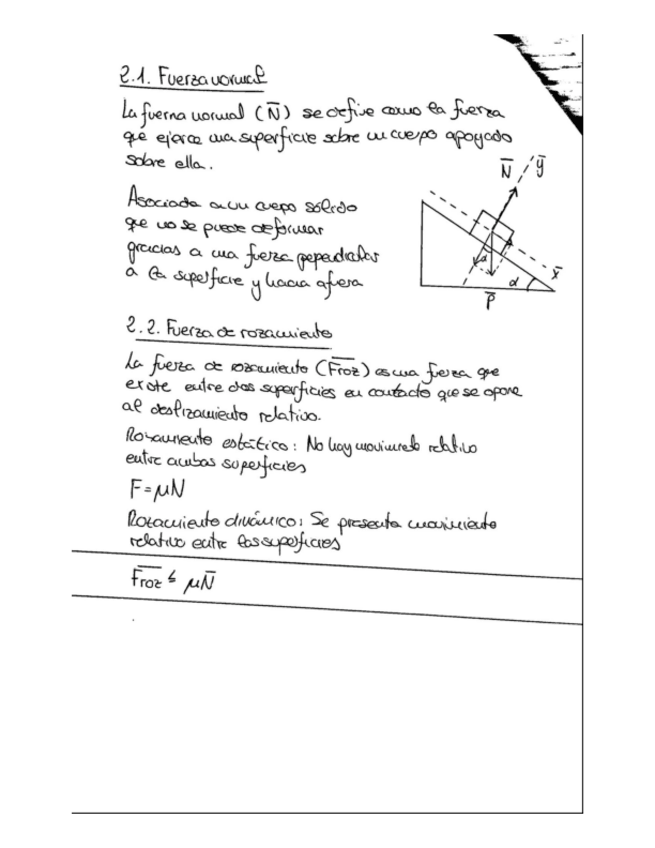 2.1. Fuerza normal
La fuerza normal (N̅) se define como la fuerza
que ejerce una superficie sobre un cuerpo apoyado
sobre ella.
N̅
y̅
Asociada a un cuerpo sólido
que no se puede deformar
gracias a una fuerza pependicular
a la superficie y hacia afuera
α
α
x̅
P̅
2.2. Fuerza de rozamiento
La fuerza de rozamiento (F̅r̅o̅z̅) es una fuerza que
existe entre dos superficies en contacto que se opone
al deslizamiento relativo.
Rozamiento estático: No hay movimiento relativo
entre ambas superficies
F=μN
Rozamiento dinámico: Se presenta movimiento
relativo entre las superficies
F̅r̅o̅z̅ ≤ μN̅